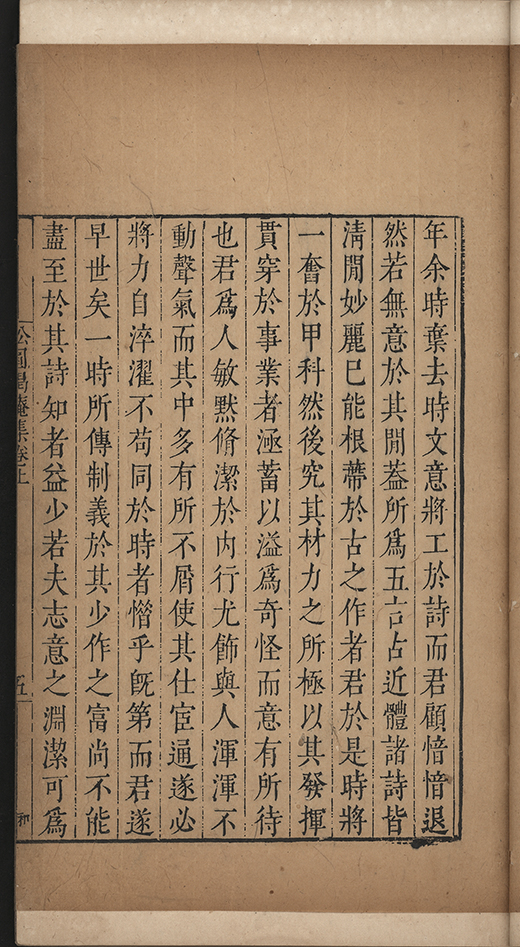 年余時棄去時文意將工於詩而君顧愔愔退
然若無意於其閒葢所爲五言古近體諸詩皆
淸閒妙麗已能根蔕於古之作者君於是時將
一奮於甲科然後究其材力之所極以其發揮
貫穿於事業者涵蓄以溢爲奇怪而意有所待
也君爲人敏黙脩潔於內行尤飾與人渾渾不
動聲氣而其中多有所不屑使其仕宦通遂必
將力自淬濯不苟同於時者惜乎旣第而君遂
早世矣一時所傳制義於其少作之富尚不能
盡至於其詩知者益少若夫志意之淵潔可爲
松圓偈庵集卷上
五
和